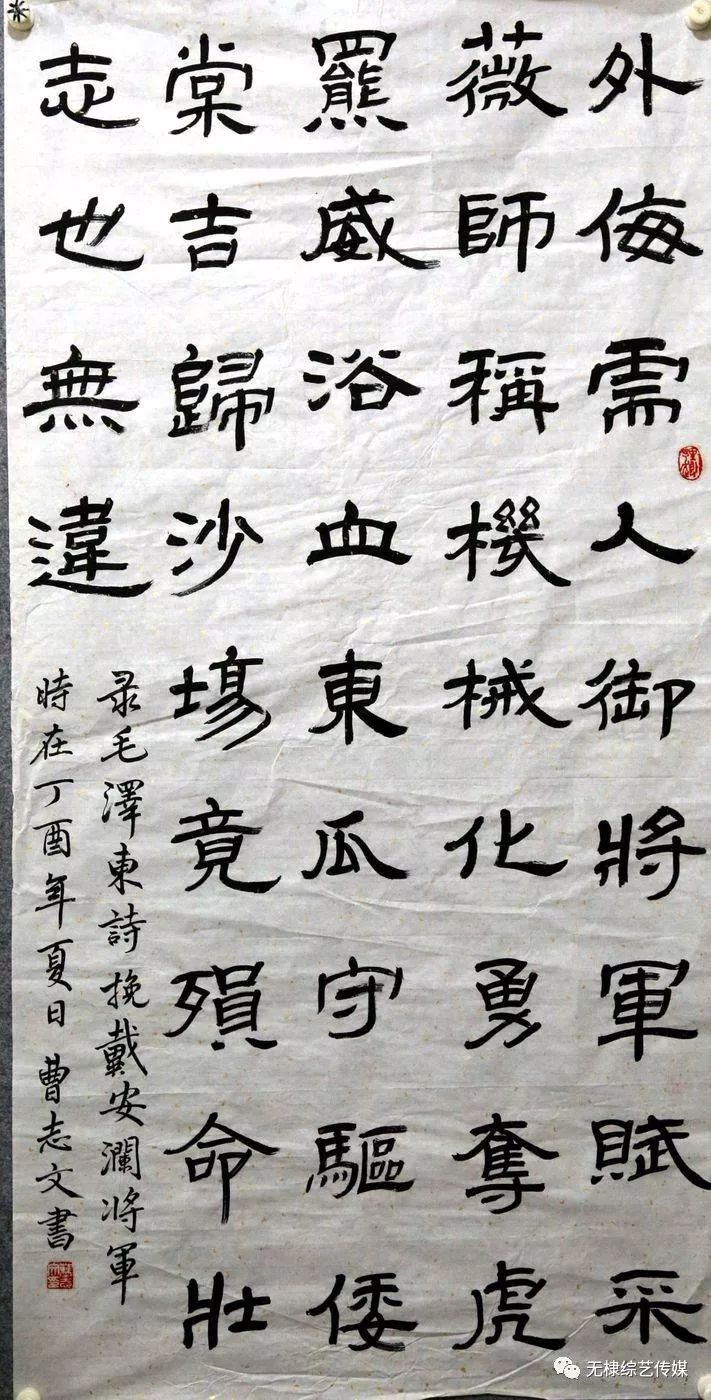 外侮需人御將軍賦采
薇師稱機械化勇奪虎
羆威浴血東瓜守驅倭
棠吉歸沙場竟殞命壯
志也無違
录毛澤東詩挽戴安瀾将軍
時在丁酉年夏日曹志文書
无棣综艺传媒